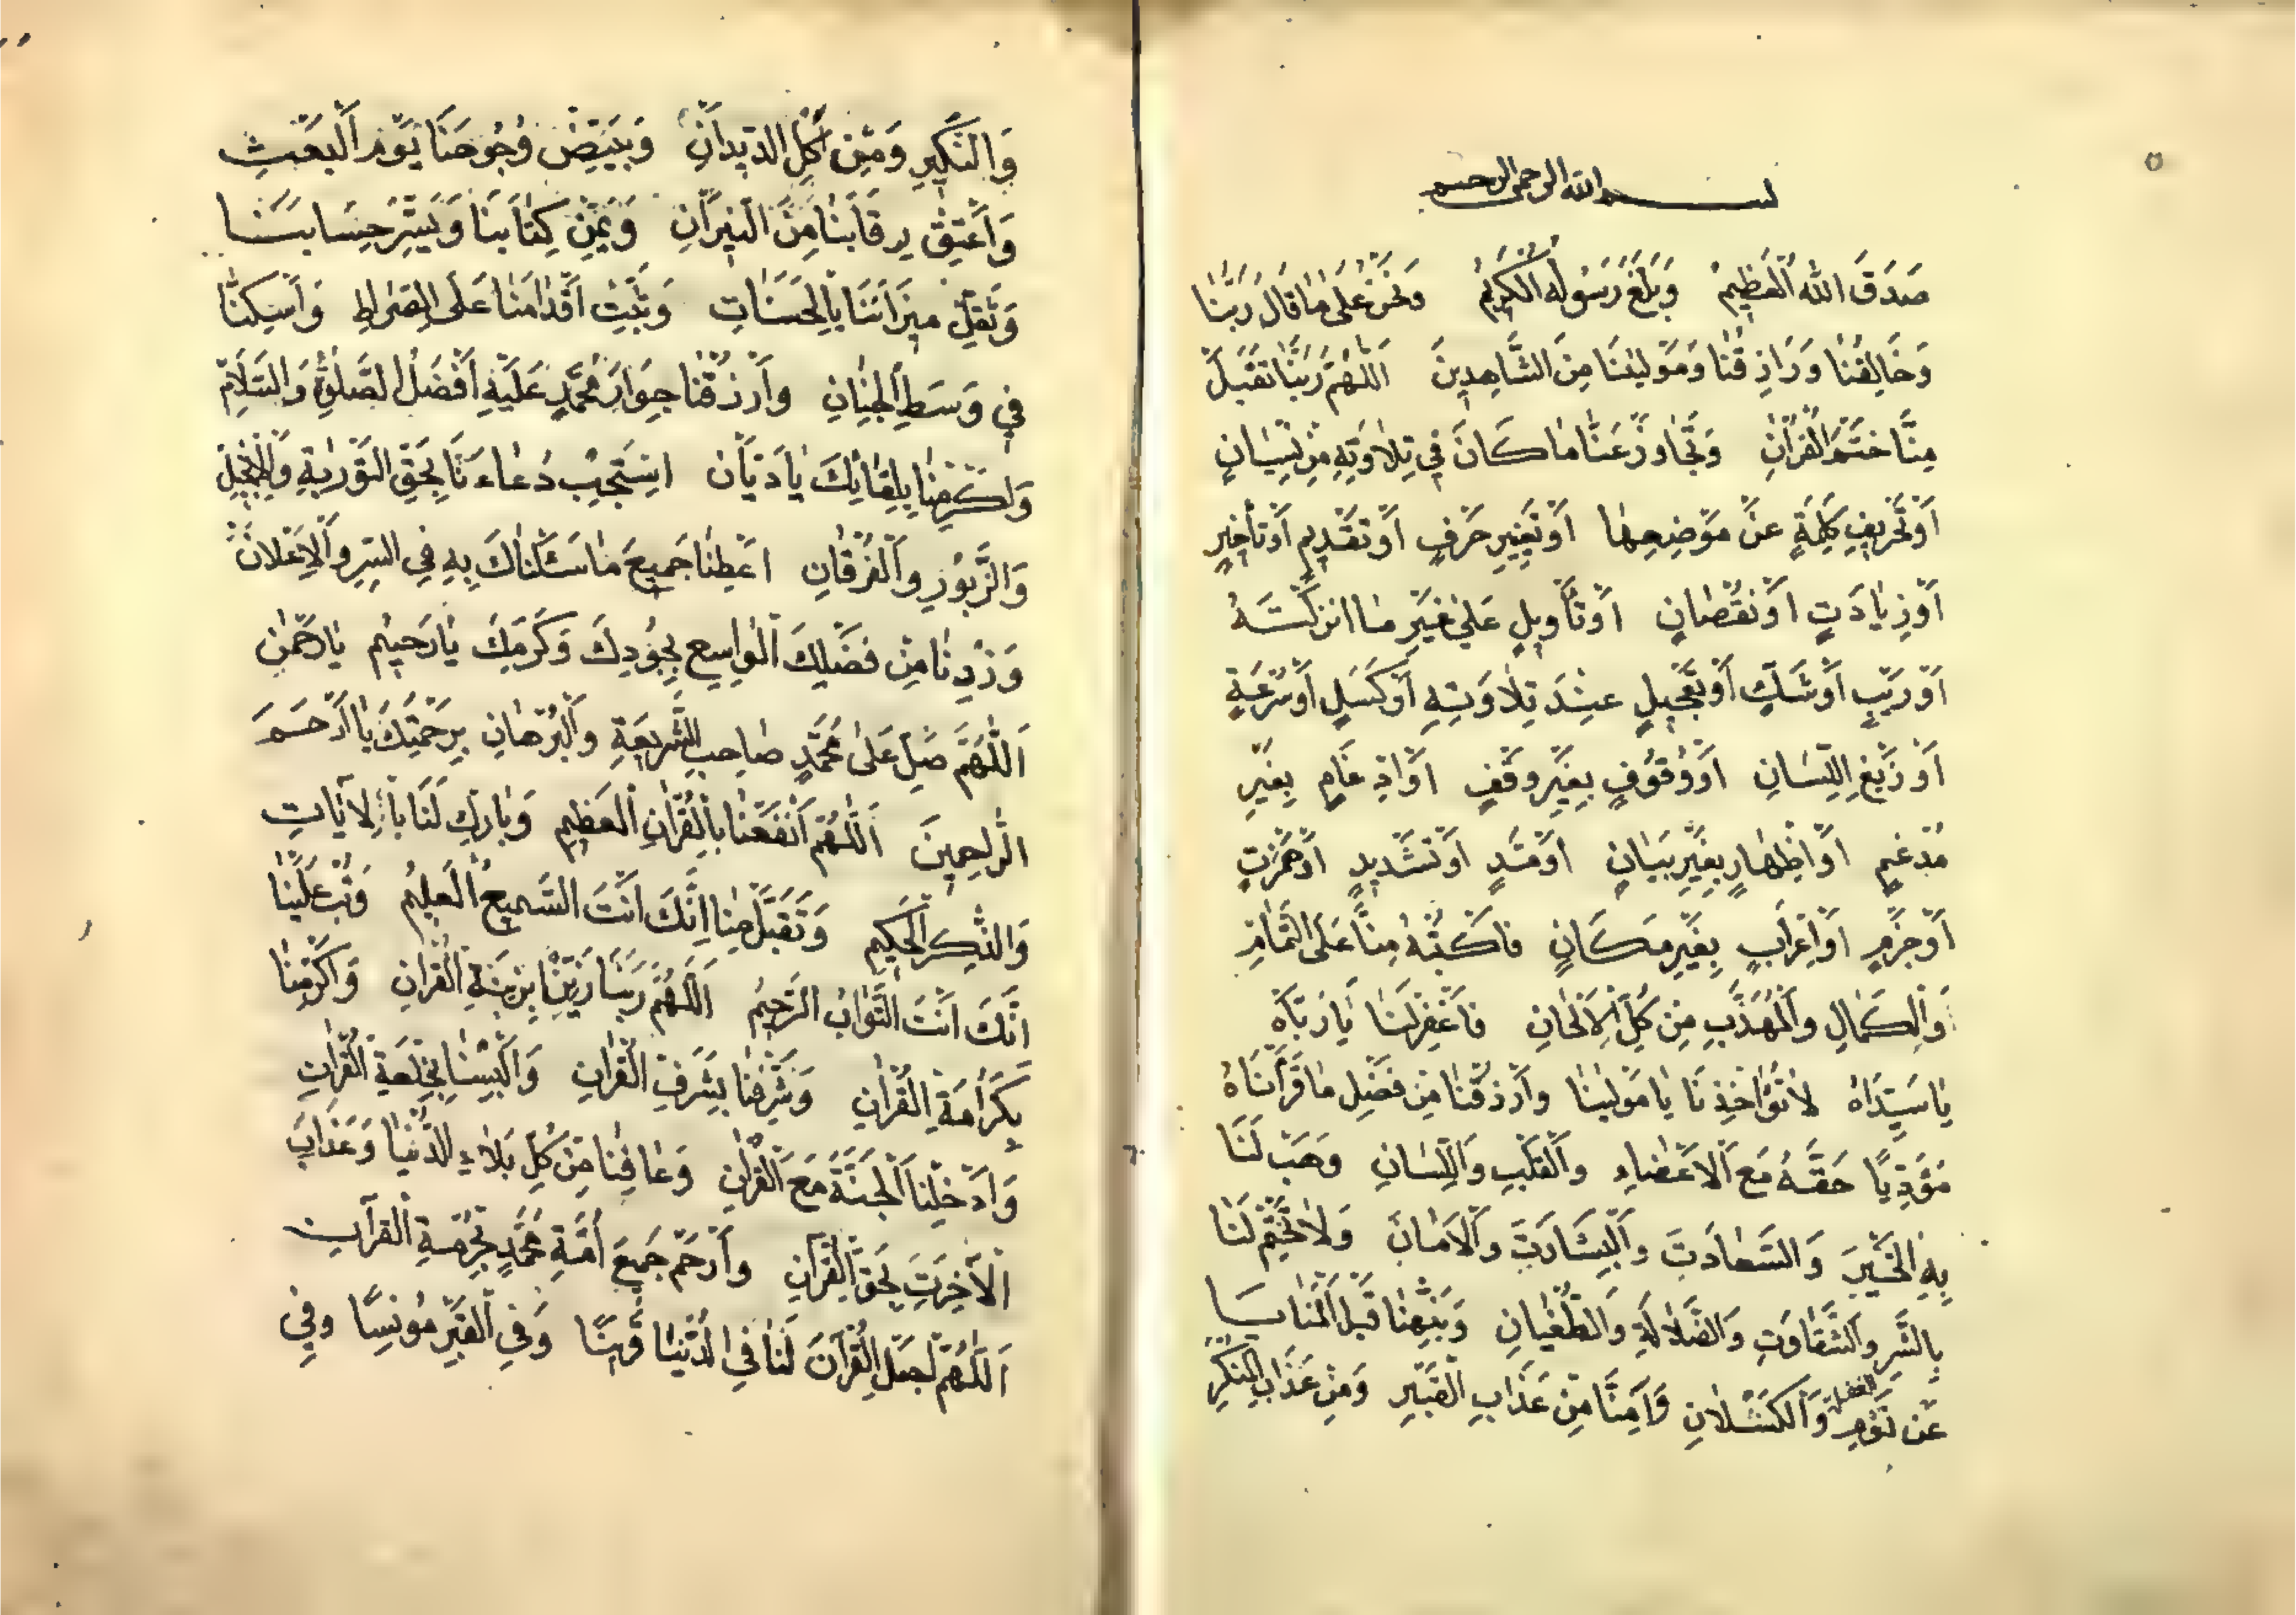 بسم الله الرحمن الرحيم
صَدَقَ اللهُ الْعَظِيمُ وَبَلَّغَ رَسُولُهُ الْكَرِيمُ وَنَحْنُ عَلَى مَا قَالَ رَبُّنَا
وَخَالِقُنَا وَرَازِقُنَا وَمَوْلَيْنَا مِنَ الشَّاهِدِينَ اَللّٰهُمَّ رَبَّنَا تَقَبَّلْ
مِنَّا خَتْمَ الْقُرْآنِ وَتَجَاوَزْ عَنَّا مَا كَانَ فِي تِلَاوَتِهِ مِنْ نِسْيَانٍ
اَوْ تَحْرِيفِ كَلِمَةٍ عَنْ مَوْضِعِهَا اَوْ تَغْيِيرِ حَرْفٍ اَوْ تَقْدِيمٍ اَوْ تَأْخِيرٍ
اَوْ زِيَادَتٍ اَوْ نُقْصَانٍ اَوْ تَأْوِيلٍ عَلَى غَيْرِ مَا انْزَلْتَهُ
اَوْ رَيْبٍ اَوْ شَكٍّ اَوْ تَعْجِيلٍ عِنْدَ تِلَاوَتِهِ اَوْ كَسَلٍ اَوْ سُرْعَةٍ
اَوْ زَيْغِ اللِّسَانِ اَوْ وُقُوفٍ بِغَيْرِ وَقْفٍ اَوْ اِدْغَامٍ بِغَيْرِ
مُدْغَمٍ اَوْ اِظْهَارٍ بِغَيْرِ بَيَانٍ اَوْ مَدٍّ اَوْ تَشْدِيدٍ اَوْ هَمْزَتٍ
اَوْ جَزْمٍ اَوْ اِعْرَابٍ بِغَيْرِ مَكَانٍ فَاكْتُبْهُ مِنَّا عَلَى التَّمَامِ
وَالْكَمَالِ وَالْمُهَذَّبِ مِنْ كُلِّ الْاَلْحَانِ فَاغْفِرْ لَنَا يَا رَبَّاهُ
يَا سَيِّدَاهُ لَا تُؤَاخِذْنَا يَا مَوْلَيْنَا وَارْزُقْنَا مِنْ فَضْلِ مَا قَرَأْنَاهُ
مُؤَدِّيًا حَقَّهُ مَعَ الْاَعْضَاءِ وَالْقَلْبِ وَاللِّسَانِ وَهَبْ لَنَا
بِهِ الْخَيْرَ وَالسَّعَادَتَ وَالْبِشَارَتَ وَالْاَمَانَ وَلَا تَخْتِمْ لَنَا
بِالشَّرِّ وَالشَّقَاوَتِ وَالضَّلَالَةِ وَالطُّغْيَانِ وَنَبِّهْنَا قَبْلَ الْمَنَايَا
عَنْ نَوْمِ الغفلة وَالْكَسْلَانِ وَآمِنَّا مِنْ عَذَابِ الْقَبْرِ وَمِنْ عَذَابِ الْنَكَرِ
وَالنَّكِيرِ وَمِنْ اَكْلِ الدِّيدَانِ وَبَيِّضْ وُجُوهَنَا يَوْمَ الْبَعْثِ
وَاَعْتِقْ رِقَابَنَا مِنَ النِّيرَانِ وَيَمِّنْ كِتَابَنَا وَيَسِّرْ حِسَابَنَا
وَثَقِّلْ مِيزَانَنَا بِالْحَسَنَاتِ وَثَبِّتْ اَقْدَامَنَا عَلَى الصِّرَاطِ وَاَسْكِنَّا
فِي وَسَطِ الْجِنَانِ وَارْزُقْنَا جِوَارَ مُحَمَّدٍ عَلَيْهِ اَفْضَلُ الصَّلٰوةِ وَالسَّلَامِ
وَاَكْرِمْنَا بِلِقَائِكَ يَا دَيَّانُ اسْتَجِبْ دُعَاءَنَا بِحَقِّ التَّوْرٰيةِ وَالْاِنْجِيلِ
وَالزَّبُورِ وَالْفُرْقَانِ اعْطِنَا جَمِيعَ مَا سَئَلْنَاكَ بِهِ فِي السِّرِّ وَالْاِعْلَانِ
وَزِدْنَا مِنْ فَضْلِكَ الْوَاسِعِ بِجُودِكَ وَكَرَمِكَ يَا رَحِيمُ يَا رَحْمٰنُ
اَللّٰهُمَّ صَلِّ عَلَى مُحَمَّدٍ صَاحِبِ الشَّرِيعَةِ وَالْبُرْهَانِ بِرَحْمَتِكَ يَا اَرْحَمَ
الرَّاحِمِينَ اَللّٰهُمَّ انْفَعْنَا بِالْقُرْآنِ الْعَظِيمِ وَبَارِكْ لَنَا بِالْاٰيَاتِ
وَالذِّكْرِ الْحَكِيمِ وَتَقَبَّلْ مِنَّا اِنَّكَ اَنْتَ السَّمِيعُ الْعَلِيمُ وَتُبْ عَلَيْنَا
اِنَّكَ اَنْتَ التَّوَّابُ الرَّحِيمُ اَللّٰهُمَّ رَبَّنَا زَيِّنَّا بِزِينَةِ الْقُرْانِ وَاَكْرِمْنَا
بِكَرَامَةِ الْقُرْانِ وَشَرِّفْنَا بِشَرَفِ الْقُرْانِ وَاَلْبِسْنَا بِخِلْعَةِ الْقُرْانِ
وَاَدْخِلْنَا الْجَنَّةَ مَعَ الْقُرْانِ وَعَافِنَا مِنْ كُلِّ بَلَاءِ الدُّنْيَا وَعَذَابِ
الْاٰخِرَتِ بِحَقِّ الْقُرْآنِ وَارْحَمْ جَمِيعَ اُمَّةِ مُحَمَّدٍ بِحُرْمَةِ الْقُرْآنِ
اَللّٰهُمَّ اجْعَلِ الْقُرْآنَ لَنَا فِي الدُّنْيَا قَرِينًا وَفِي الْقَبْرِ مُونِسًا وَفِي